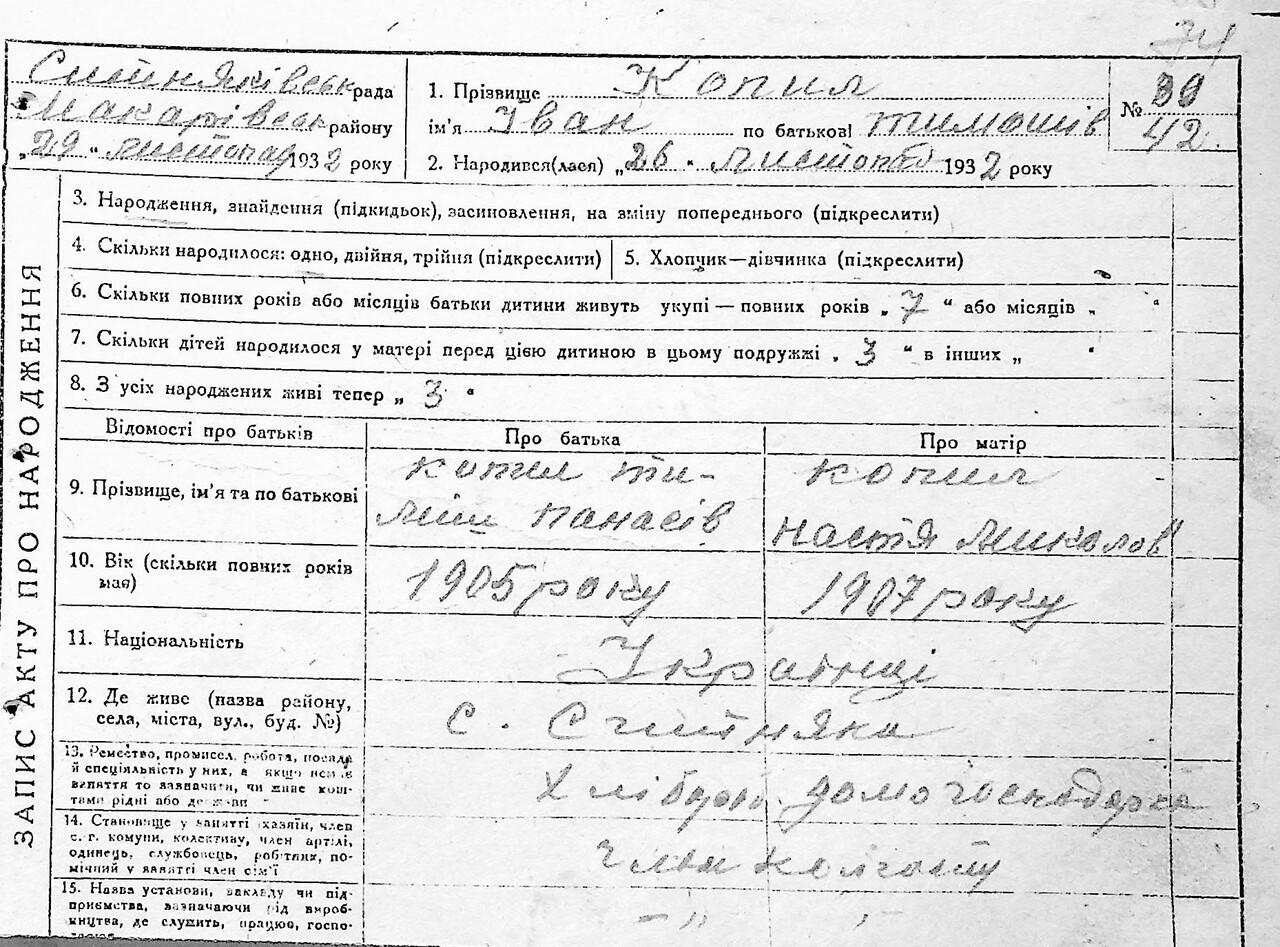 74
Ситняківськ рада
Макарівськ району
„29" листопад 1932 року
1. Прізвище Копил
ім'я Іван по батькові Тимошів
2. Народився(лася) „26" листопад 1932 року
№ 39
42.
ЗАПИС АКТУ ПРО НАРОДЖЕННЯ
3. Народження, знайдення (підкидьок), засиновлення, на зміну попереднього (підкреслити)
4. Скільки народилося: одно, двійня, трійня (підкреслити)
5. Хлопчик—дівчинка (підкреслити)
6. Скільки повних років або місяців батьки дитини живуть укупі — повних років „ 7 " або місяців „ "
7. Скільки дітей народилося у матері перед цією дитиною в цьому подружжі „ 3 " в інших „ "
8. З усіх народжених живі тепер „ 3 "
Відомості про батьків
Про батька
Про матір
9. Прізвище, ім'я та по батькові
копил ти-
міш панасів
копил
настя миколов
10. Вік (скільки повних років
має)
1905 року
1907 року
11. Національність
Українці
12. Де живе (назва району,
села, міста, вул., буд. №)
с. Ситняки
13. Ремество, промисел, робота, посада
й спеціяльність у них, а якщо немає
заняття то зазначити, чи живе кош-
тами рідні або держави
Хлібороб. домогосподарка
14. Становище у занятті (хазяїн, член
с. г. комуни, колективу, член артілі,
одинець, службовець, робітник, по-
мічний у занятті член сім'ї
член колгоспу
15. Назва установи, закладу чи під-
приємства, зазначаючи рід вироб-
ництва, де служить, працює, госпо-
– „